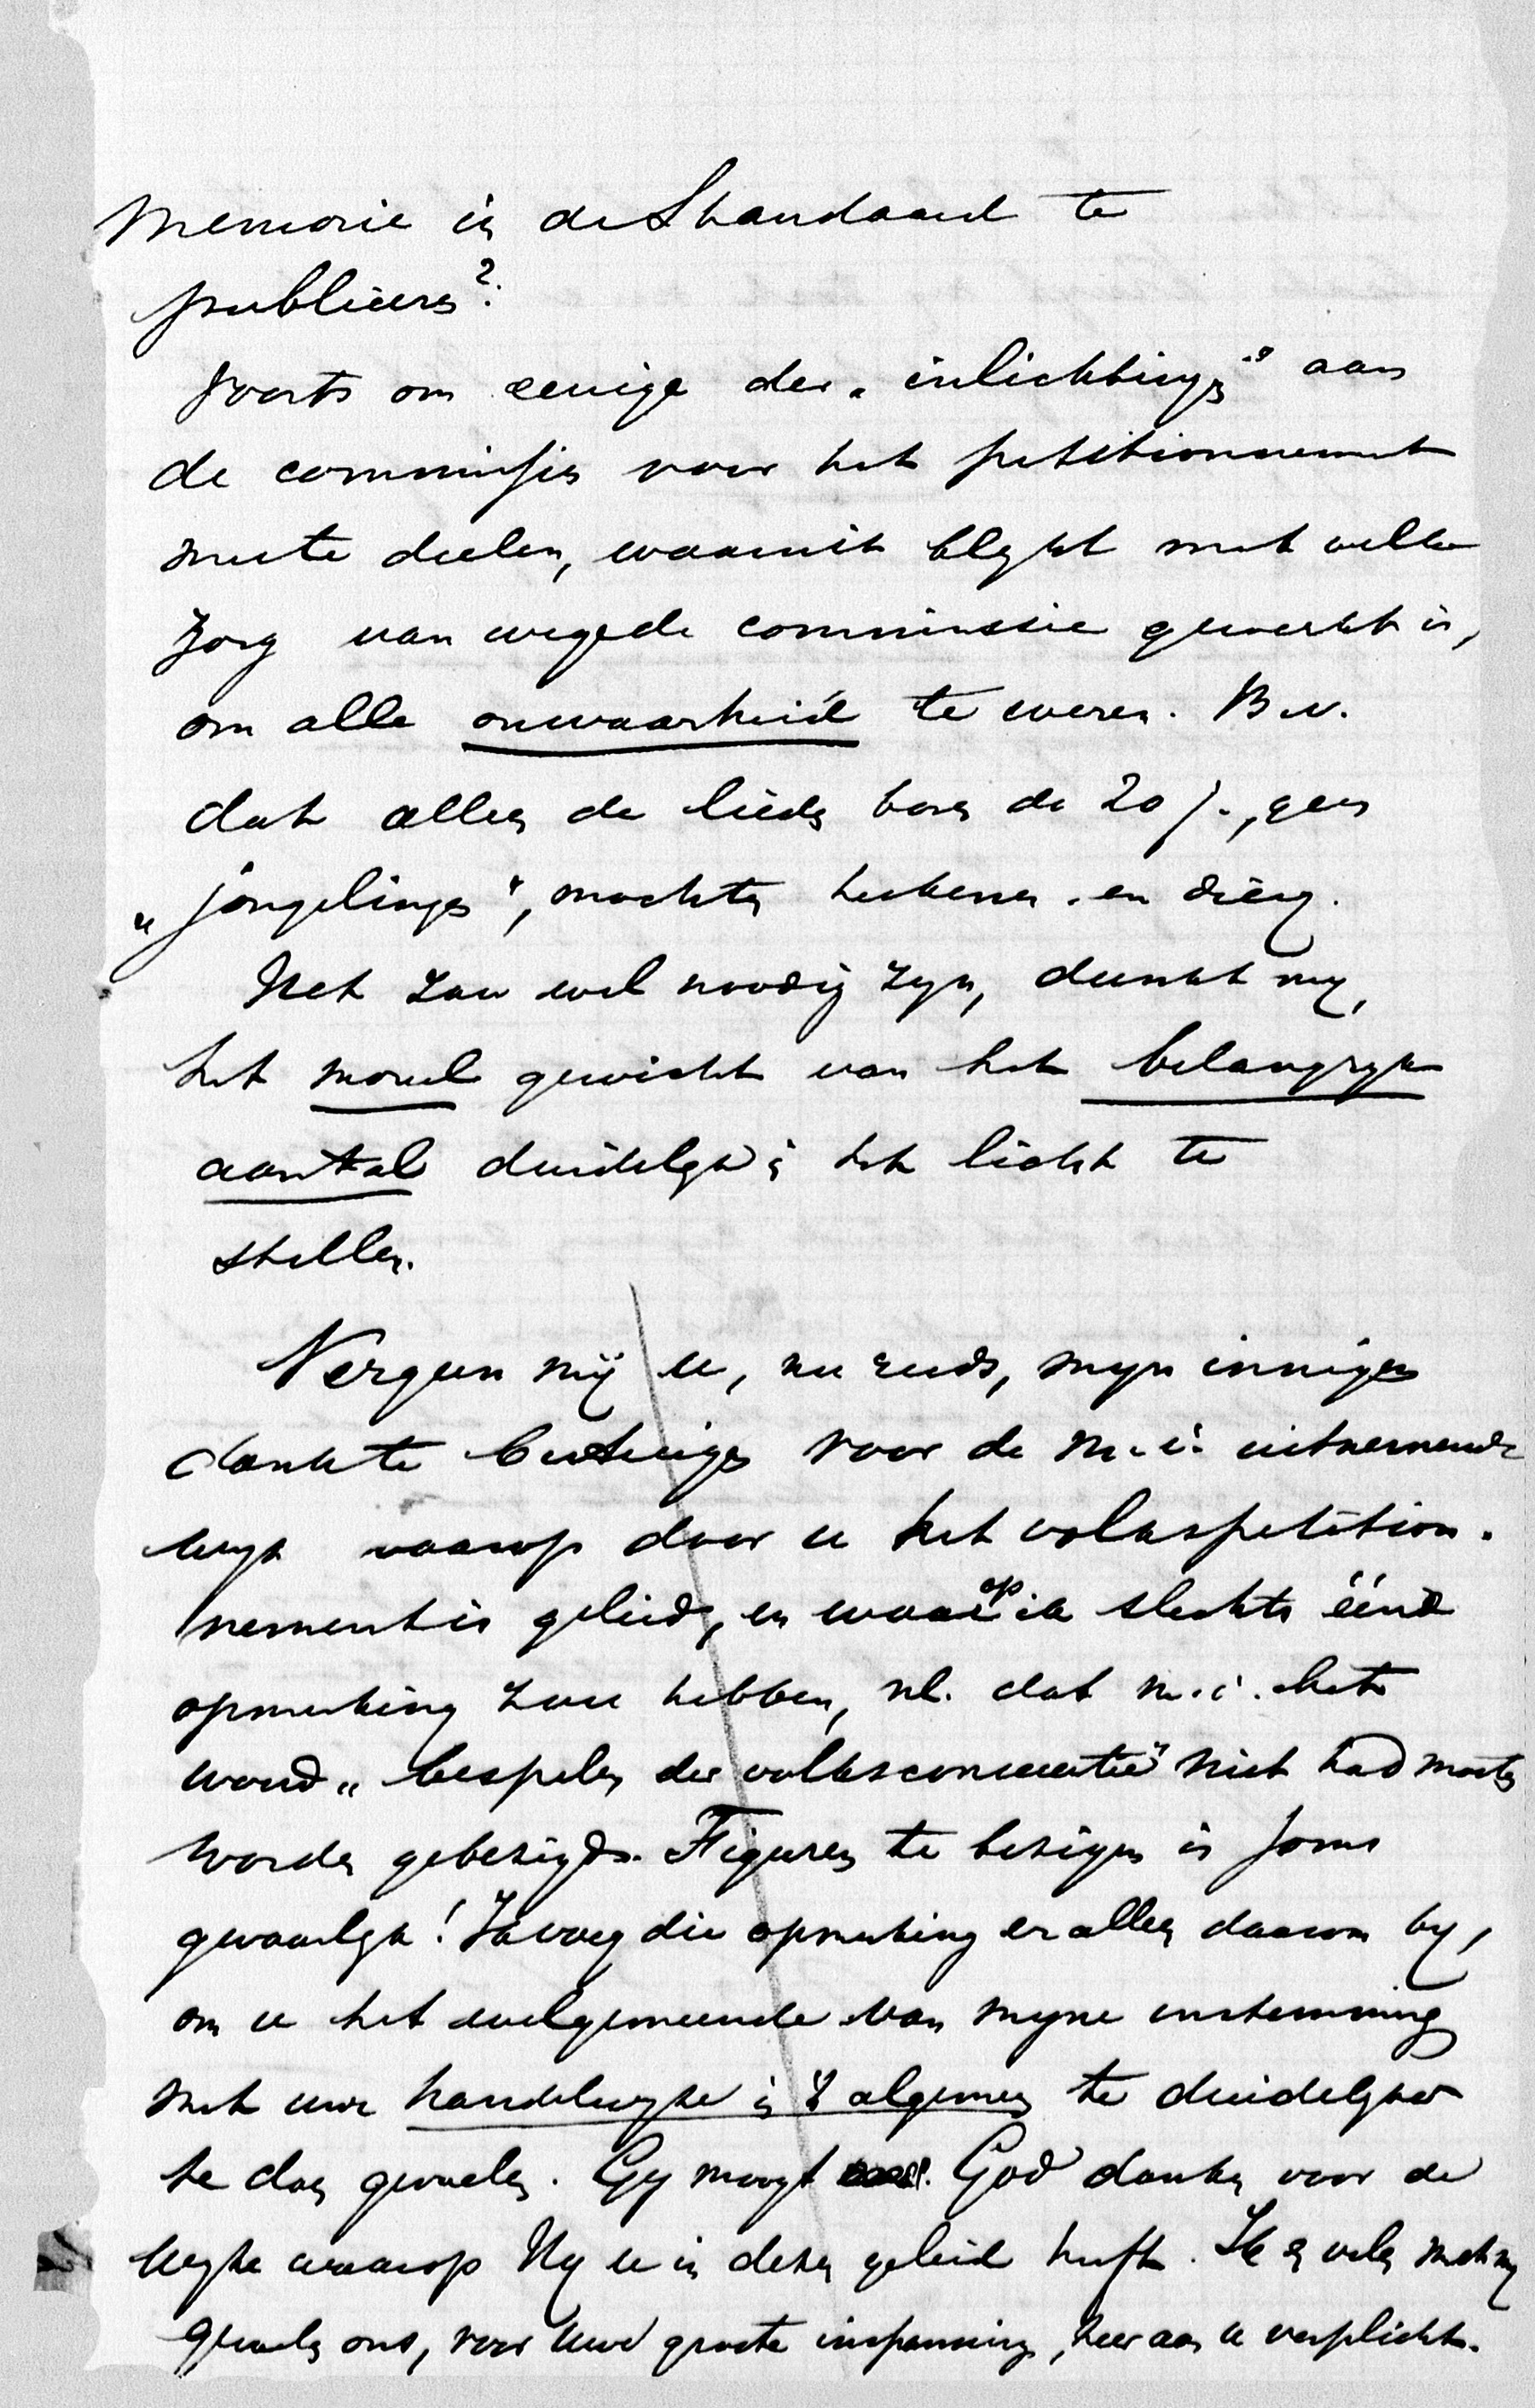 Memorie in de Standaard te
publiceren?
Voorts om eenige der „inlichtingen" aan
de commissies voor het petitionnement
mede te deelen, waaruit blykt met welke
zorg van wege de commissie gewerkt is,
om alle onwaarheid te weren. B.v.
dat alleen de lieden boven de 20 j., geen
„jongelingen", mochten teekenen. en dierg.
Het zou wel noodig zyn, dunkt my,
het moreel gewicht van het belangryk
aantal duidelyk in het licht te
stellen.
Vergun mij u, nu reeds, myn innigen
dank te betuigen voor de m.i. uitnemende
wyze waarop door u het volkspetition-
nement is geleid, en waarop ik slechts ééne
opmerking zou hebben, nl. dat m.i. het
woord „bespelen der volksconscientie" niet had moeten
worden gebezigd. Figuren te bezigen is soms
gevaarlyk! Ik voeg die opmerking er alleen daarom by,
om u het welgemeende van myne instemming
met uwe handelwyze in 't algemeen te duidelyker
te doen gevoelen. Gy moogt God danken voor de
wyze waarop Hy u in dezen geleid heeft. Ik en velen met my
gevoelen ons, voor uwe groote inspanning, zeer aan u verplicht.